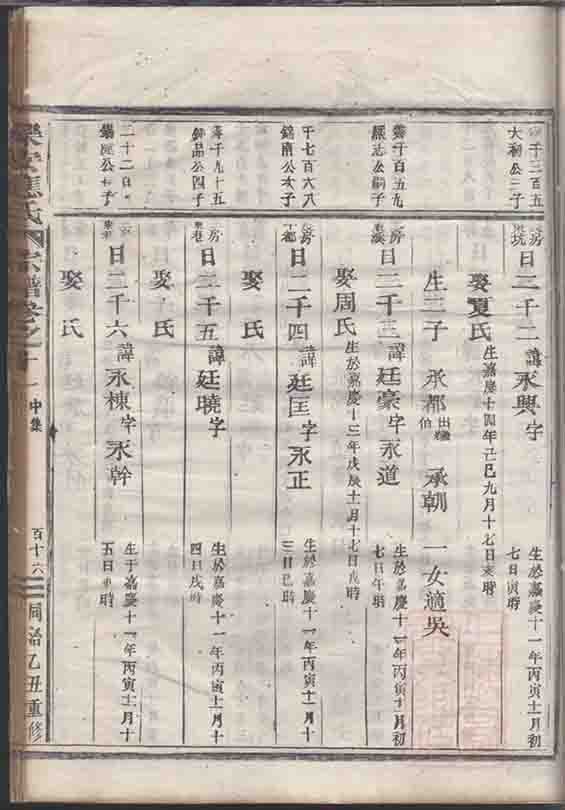 千三百五
大利公三子
房
日二千二諱永興字
生於嘉慶十一年丙寅十一月初
七日寅時
娶夏氏
生嘉慶十四年己巳九月十七日亥時
生三子 承都 承朝 一女適吳
千百五九
公嗣子
房
日二千三諱廷豪字永道
生於嘉慶十一年丙寅十一月初
七日午時
娶周氏
生於嘉慶十三年戊辰十一月十七日戌時
千七百六八
錦南公次子
房
日二千四諱廷匡字永正
生於嘉慶十一年丙寅十一月十
三日巳時
娶 氏
千九十五
公四子
房
東巷
日二千五諱廷曉字
生於嘉慶十一年丙寅十一月十
四日戌時
娶 氏
二十二
公子
日二千六諱永棟字永幹
生于嘉慶十一年丙寅十一月十
五日 時
娶 氏
樂安蔣氏宗譜卷之十一
中集
百十六
同治乙丑重修